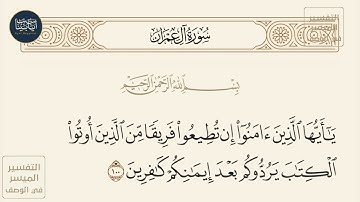 سُورَةُ آلِ عِمْرَانَ
بِسْمِ اللَّهِ الرَّحْمَٰنِ الرَّحِيمِ
يَٰٓأَيُّهَا ٱلَّذِينَ ءَامَنُوٓا۟ إِن تُطِيعُوا۟ فَرِيقًا مِّنَ ٱلَّذِينَ أُوتُوا۟
ٱلْكِتَٰبَ يَرُدُّوكُم بَعْدَ إِيمَٰنِكُمْ كَٰفِرِينَ ١٠٠
التفسير
الميسر
في الوصف
التفسير
الميسر
في الوصف